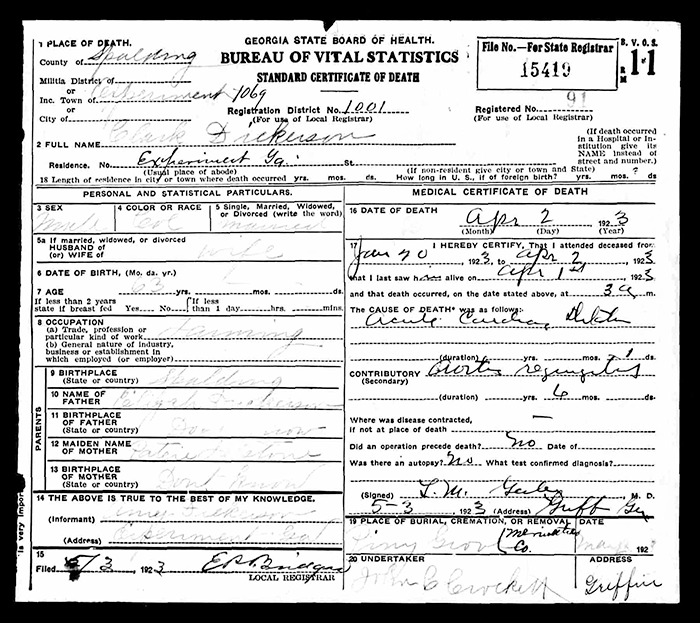 1 PLACE OF DEATH.
County of Spalding
Militia District of
or
Inc. Town of Experiment 1069
or
City of
GEORGIA STATE BOARD OF HEALTH.
BUREAU OF VITAL STATISTICS
STANDARD CERTIFICATE OF DEATH
Registration District No. 1001
(For use of Local Registrar)
File No.—For State Registrar
15419
B. V. O. S.
RM 11
Registered No. 91
(For use of Local Registrar)
2 FULL NAME Clark Dickerson
(If death occurred in a Hospital or Institution give its NAME instead of street and number.)
Residence. No. Experiment Ga. St.
(Usual place of abode) (If non-resident give city or town and State)
18 Length of residence in city or town where death occurred yrs. mos. ds. How long in U. S., if of foreign birth? yrs. mos. ? ds
PERSONAL AND STATISTICAL PARTICULARS.
3 SEX Male
4 COLOR OR RACE Col
5 Single, Married, Widowed, or Divorced (write the word) married
5a If married, widowed, or divorced
HUSBAND of
(or) WIFE of wife
6 DATE OF BIRTH, (Mo. da. yr.)
7 AGE 63 yrs. mos. ds.
If less than 2 years state if breast fed Yes No
If less than 1 day hrs. mins.
8 OCCUPATION
(a) Trade, profession or particular kind of work Farming
(b) General nature of industry, business or establishment in which employed (or employer)
PARENTS
9 BIRTHPLACE
(State or country) Spalding
10 NAME OF FATHER Elijah Dickerson
11 BIRTHPLACE OF FATHER
(State or country) Dont know
12 MAIDEN NAME OF MOTHER
13 BIRTHPLACE OF MOTHER
(State or country) Dont know
14 THE ABOVE IS TRUE TO THE BEST OF MY KNOWLEDGE.
(Informant)
(Address) Experiment Ga
15
Filed 5/3 1923
LOCAL REGISTRAR
MEDICAL CERTIFICATE OF DEATH
16 DATE OF DEATH Apr 2 1923
(Month) (Day) (Year)
17 I HEREBY CERTIFY, That I attended deceased from
Jan 20 1923, to Apr 2, 1923
that I last saw him alive on Apr 1st, 1923
and that death occurred, on the date stated above, at 3 a m.
The CAUSE OF DEATH* was as follows:
Acute Cardiac
(duration) yrs. mos. 1 ds.
CONTRIBUTORY Aortic
(Secondary)
(duration) yrs. 6 mos. ds.
Where was disease contracted,
if not at place of death —
Did an operation precede death? No Date of
Was there an autopsy? No What test confirmed diagnosis?
(Signed) M. D.
5-3, 1923 (Address) Griffin Ga
19 PLACE OF BURIAL, CREMATION, OR REMOVAL DATE
Co. 192
20 UNDERTAKER ADDRESS
John C Crockett Griffin
is very import